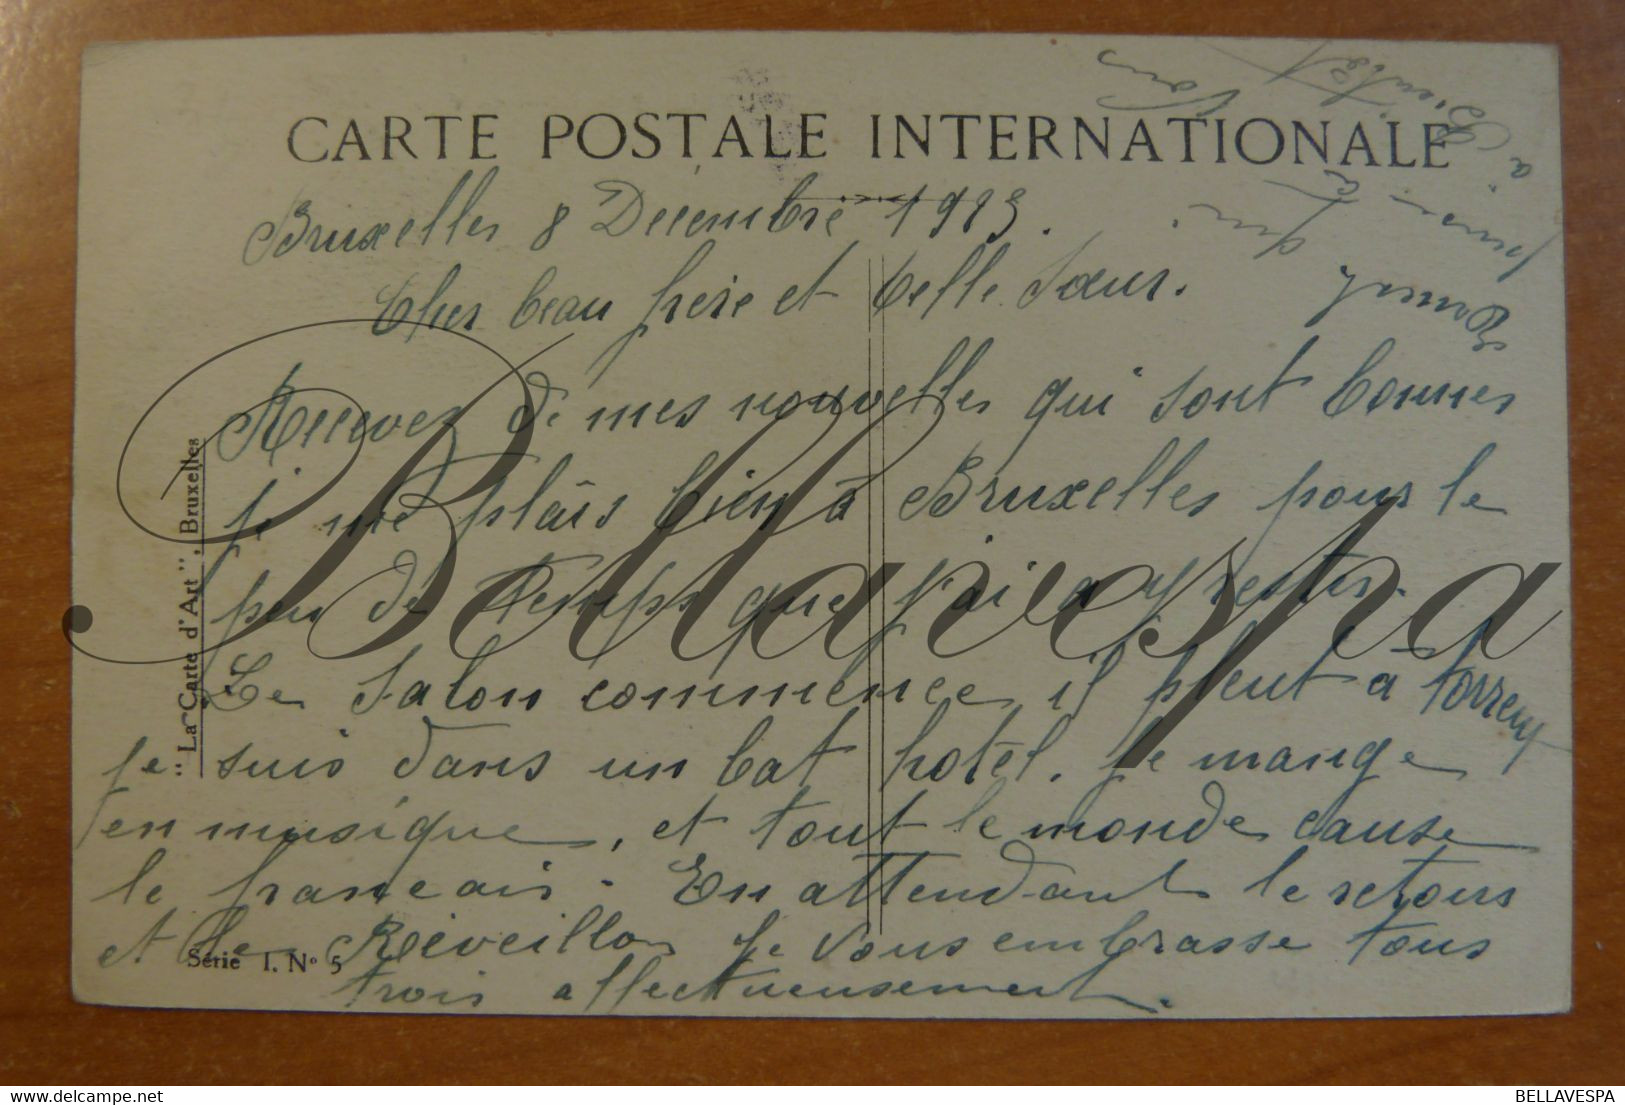 CARTE POSTALE INTERNATIONALE
Bruxelles 8 Décembre 1923.
Cher beau frère et belle Sœur.
Recevez de mes nouvelles qui sont bonnes
je me plais bien à Bruxelles pour le
peu de temps que j'ai a y rester.
Le Salon commence il pleut à torrent
je suis dans un bat hotel. je mange
en musique, et tout le monde cause
le francais. En attendant le retour
et le Réveillon je vous embrasse tous
trois affectueusement.
à Bientôt
"La Carte d'Art", Bruxelles
Série I. N° 5
Bellavespa
delcampe.net
BELLAVESPA